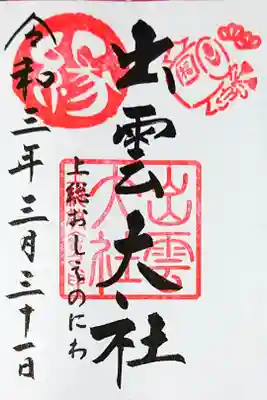 福
出雲大社
出雲
大社
縁
上総おしゑのにわ
令和三年三月三十一日